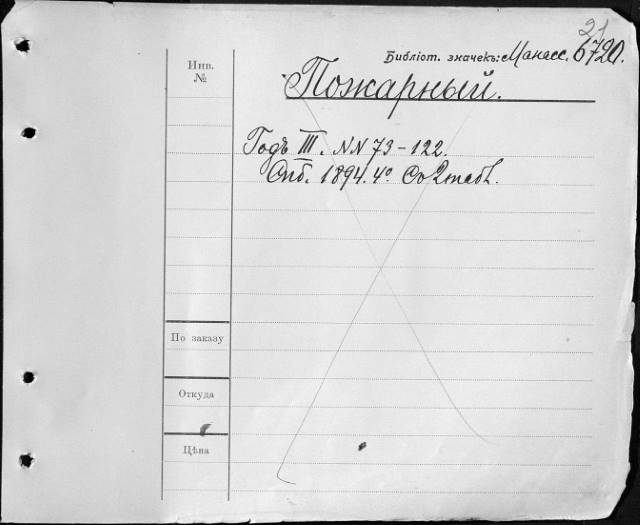 21
Библіот. значекъ: Манасс. 6720.
Инв.
№
Пожарный.
Годъ III. NN 73-122.
Спб. 1894. 4° Со 2 табл.
По заказу
Откуда
Цѣна